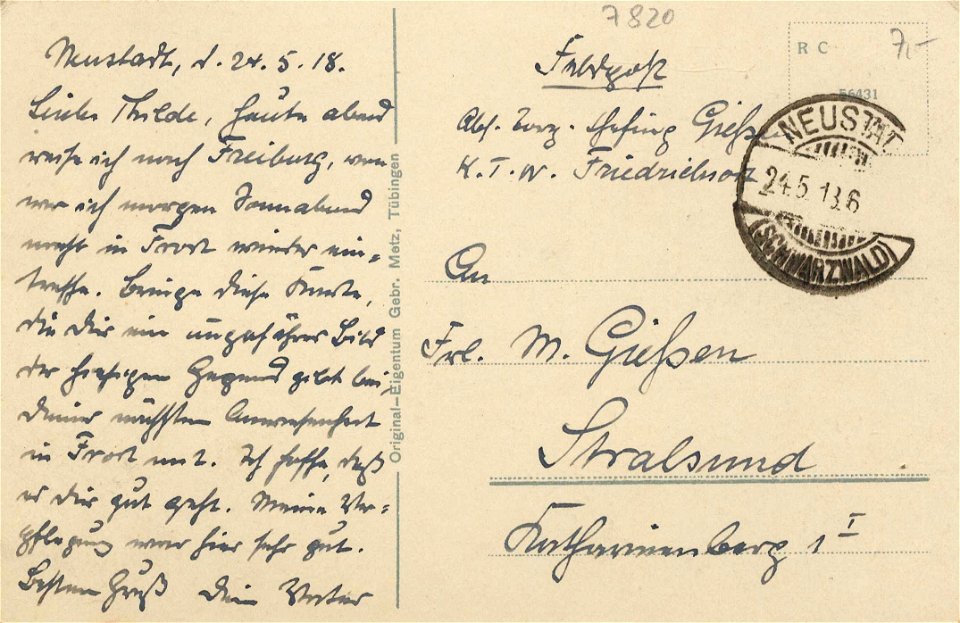 7820
R C
7,-
56431
Feldpost
NEUSTADT
24.5.18.6
(SCHWARZWALD)
Neustadt, d. 24.5.18.
Liebe Thilde, heute abend
reise ich nach Freiburg, von
wo ich morgen Sonnabend
in Frost wieder ein-
treffe. Bringe diese Karte,
die Dir ein ungefähres Bild
der hiesigen Gegend gibt bei
Deiner nächsten Anwesenheit
in Frost mit. Ich hoffe, daß
es Dir gut geht. Meine Ver-
pflegung war hier sehr gut.
Besten Gruß Dein Vater
Original-Eigentum Gebr. Metz, Tübingen
Abs.
K. T. W. Friedrichsort
An
Frl. M. Gießen
Stralsund
Katharinenberg 1 I